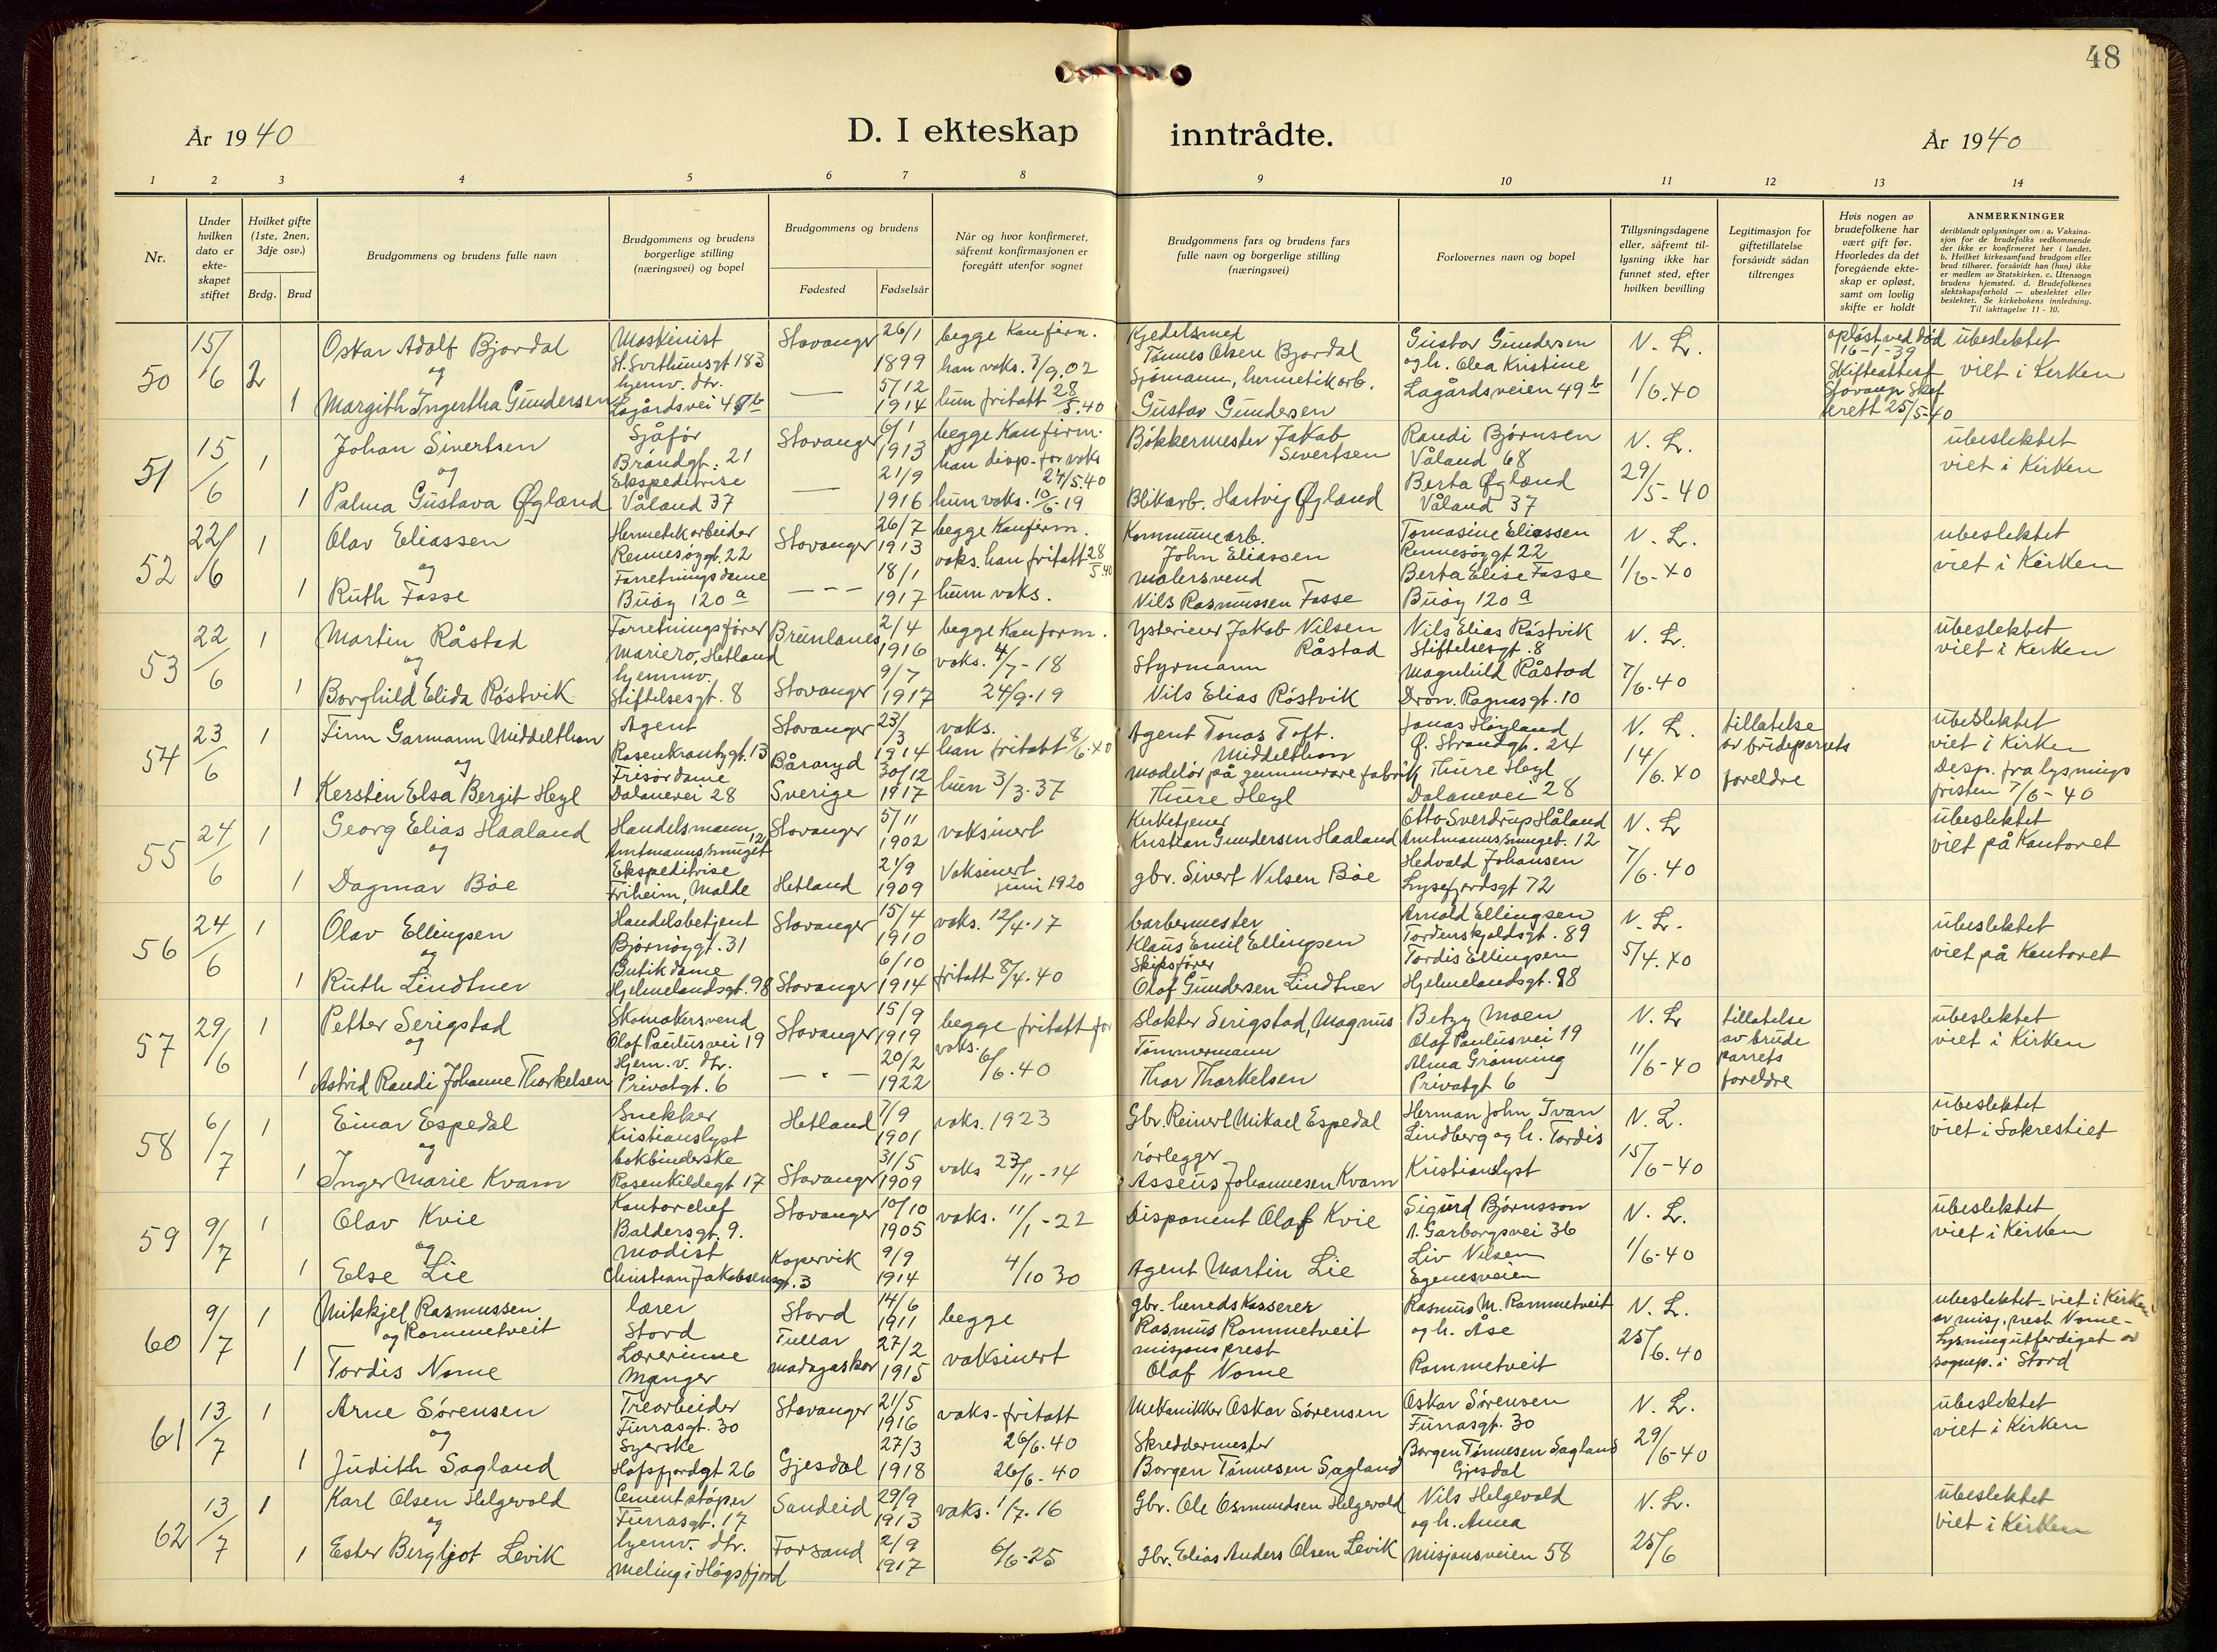 48
År 1940
D. I ekteskap inntrådte.
År 1940
1 2 3 4 5 6 7 8 9 10 11 12 13 14
Nr.
Under hvilken dato er ekte-skapet stiftet
Hvilket gifte (1ste, 2nen, 3dje osv.)
Brdg. Brud
Brudgommens og brudens fulle navn
Brudgommens og brudens borgerlige stilling (næringsvei) og bopel
Brudgommens og brudens
Fødested Fødselsår
Når og hvor konfirmeret, såfremt konfirmasjonen er foregått utenfor sognet
Brudgommens fars og brudens fars fulle navn og borgerlige stilling (næringsvei)
Forlovernes navn og bopel
Tillysningsdagene eller, såfremt til-lysning ikke har funnet sted, efter hvilken bevilling
Legitimasjon for giftetillatelse forsåvidt sådan tiltrenges
Hvis nogen av brudefolkene har vært gift før. Hvorledes da det foregående ekte-skap er opløst, samt om lovlig skifte er holdt
ANMERKNINGER
deriblandt oplysninger om: a. Vaksina-sjon for de brudefolks vedkommende der ikke er konfirmeret her i landet. b. Hvilket kirkesamfund brudgom eller brud tilhører, forsåvidt han (hun) ikke er medlem av Statskirken. c. Utensogn brudens hjemsted. d. Brudefolkenes slektskapsforhold — ubeslektet eller beslektet. Se kirkebokens innledning. Til iakttagelse 11 - 10.
50 15/6 2 Oskar Adolf Bjordal Maskinist Stavanger 26/1 1899 begge Konfirm. Kjedelsmed Gustav Gundersen N. L. opløst ved død ubeslektet
og H. Svithunsgt 183 han vaks. 7/9.02 Tønnes Olsen Bjordal og h. Olea Kristine 16-1-39
1 Margith Ingertha Gundersen hjemv. dtr. — 5/12 1914 hun fritatt 28/5.40 Sjømann, hermetikarb. Lagårdsveien 49 b 1/6.40 Skifteattest viet i Kirken
Gustav Gundersen 25/5-40
51 15/6 1 Johan Sivertsen Sjåfør Stavanger 6/1 1913 begge Konfirm. Bøkkermester Jakob Sivertsen Randi Bjørnsen N. L. ubeslektet
og Brandgt. 21 han disp. for vaks 24/5.40 Våland 68 viet i Kirken
1 Palma Gustava Øgland Ekspeditrise — 21/9 1916 hun vaks. 10/6-19 Blikarb. Hartvig Øgland Berta Øgland 29/5-40
Våland 37 Våland 37
52 22/6 1 Olav Eliassen Hermetikarbeider Stavanger 26/7 1913 begge Konfirm. Kommunearb. Tomasine Eliassen N. L. ubeslektet
og Rennesøygt. 22 vaks. han fritatt 28/5.40 John Eliassen Rennesøygt 22 viet i Kirken
1 Ruth Fosse Forretningsdame --- 18/1 1917 hun vaks. Malersvend Berta Elise Fosse 1/6-40
Buøy 120 a Nils Rasmussen Fosse Buøy 120 a
53 22/6 1 Martin Råstad Forretningsfører Brunlanes 2/4 1916 begge Konform. Ysterieier Jakob Nilsen Råstad Nils Elias Røstvik N. L. ubeslektet
og Mariero, Hetland vaks. 4/7-18 Stiftelsesgt. 8 viet i Kirken
1 Borghild Elida Røstvik hjemmv. Stavanger 9/7 1917 24/9.19 Styrmann Magnhild Råstad 7/6.40
Stiftelsesgt. 8 Nils Elias Røstvik Dron. Ragnasgt. 10
54 23/6 1 Finn Garmann Middelthon Agent Stavanger 23/3 1914 vaks. Agent Tonas Toft. Middelthon Jonas Høyland N. L. tillatelse ubeslektet
og Rosenkrantzgt. 13 han fritatt 8/6.40 Ø. Strandgt. 24 av brudeparrets viet i Kirken
1 Kerstin Elsa Bergit Heyl Frisørdame Båraryd Sverige 30/12 1917 hun 3/3.37 Modelør på gummivarefabrik Thure Heyl 14/6.40 foreldre Disp. fra lysnings
Dalanevei 28 Thure Heyl Dalanevei 28 fristen 7/6-40
55 24/6 1 Georg Elias Haaland Handelsmann Stavanger 5/11 1902 vaksinert Kirketjener Otto Sverdrup Håland N. L ubeslektet
og Amtmannssmuget 12 Kristian Gundersen Haaland Amtmannssmuget. 12 viet på Kontoret
1 Dagmar Bøe Ekspeditrise Hetland 21/9 1909 Vaksinert juni 1920 gbr. Sivert Nilsen Bøe Hedvald Johansen 7/6.40
Friheim, Malde Lysefjordsgt 72
56 24/6 1 Olav Ellingsen Handelsbetjent Stavanger 15/4 1910 vaks. 12/4.17 barbermester Arnold Ellingsen N. L. ubeslektet
og Bjørnøygt. 31 Klaus Emil Ellingsen Tordenskjoldsgt. 89 viet på Kontoret
1 Ruth Lindtner Butikdame Stavanger 6/10 1914 fritatt 8/4.40 Skipsfører Tordis Ellingsen 5/4.40
Hjelmelandsgt. 98 Olaf Gundersen Lindtner Hjelmelandsgt. 98
57 29/6 1 Petter Serigstad Skomakersvend Stavanger 15/9 1919 begge fritatt for vaks. Slakter Serigstad, Magnus Betzy Moen N. L tillatelse ubeslektet
og Olaf Paulusvei 19 Olaf Paulusvei 19 av brude viet i Kirken
1 Astrid Randi Johanne Thorkelsen Hjem. v. dtr. — " — 20/2 1922 6/6.40 Tømmermann Alma Grønning 11/6-40 parrets
Privatgt. 6 Thor Thorkelsen Privatgt 6 foreldre
58 6/7 1 Einar Espedal Snekker Hetland 7/9 1901 vaks. 1923 Gbr. Reinert Mikael Espedal Herman John Ivan N. L. ubeslektet
og Kristianslyst Lindberg og h. Tordis viet i Sakrestiet
1 Inger Marie Kvam bokbinderske Stavanger 31/5 1909 vaks 23/11-14 rørlegger Kristianslyst 15/6-40
Rosenkildegt 17 Asseus Johannesen Kvam
59 9/7 1 Olav Kvie Kontorchef Stavanger 10/10 1905 vaks. 11/1-22 Disponent Olaf Kvie Sigurd Bjørnsson N. L. ubeslektet
og Baldersgt. 9. A. Garborgsvei 36 viet i Kirken
1 Else Lie Modist Kopervik 9/9 1914 4/10 30 Agent Martin Lie Liv Nilsen 1/6-40
Christian Jakobsensgt. 3 Egenesveien
60 9/7 1 Mikkjel Rasmussen Rommetveit lærer Stord 14/6 1911 begge gbr. herredskasserer Rasmus M. Rommetveit N. L. ubeslektet - viet i Kirken
og Stord Rasmus Rommetveit og h. Åse av misj. prest Nome -
1 Tordis Nome Lærerinne Tullar Madagaskar 27/2 1915 vaksinert misjonsprest Rommetveit 25/6.40 Lysning utferdiget av
Manger Olaf Nome sognep. i Stord
61 13/7 1 Arne Sørensen Trearbeider Stavanger 21/5 1916 vaks-fritatt Mekanikker Oskar Sørensen Oskar Sørensen N. L. ubeslektet
og Furrasgt. 30 26/6.40 Furrasgt. 30 viet i Kirken
1 Judith Sagland Syerske Gjesdal 27/3 1918 26/6-40 Skreddermester Borgen Tønnesen Sagland 29/6-40
Hafsfjordgt 26 Borgen Tønnesen Sagland Gjesdal
62 13/7 1 Karl Olsen Helgevold Cementstøper Sandeid 29/9 1913 vaks. 1/7.16 Gbr. Ole Osmundsen Helgevold Nils Helgevold N. L. ubeslektet
og Furrasgt. 17 og h. Anna viet i Kirken
1 Ester Bergljot Levik hjemv. dtr. Forsand 2/9 1917 6/6-25 gbr. Elias Anders Olsen Levik Misjonsveien 58 25/6
Meling i Høgsfjord